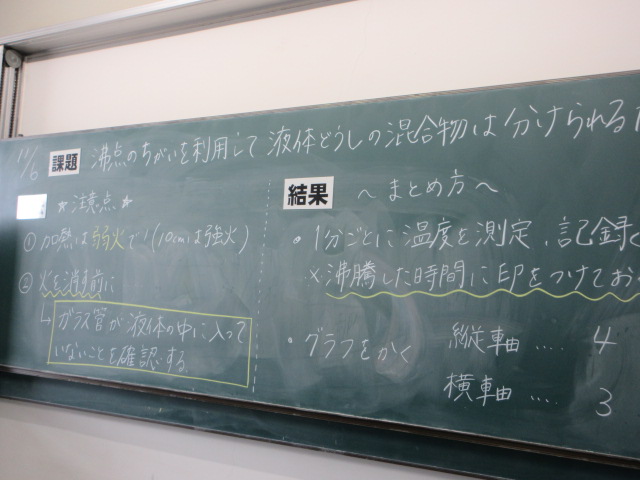 11/6 課題 沸点のちがいを利用して液体どうしの混合物は分けられる
＊注意点＊
①加熱は弱火で!(10cmは強火)
②火を消す前に
↳ガラス管が液体の中に入って
いないことを確認する
結果 〜まとめ方〜
・1分ごとに温度を測定、記録
×沸騰した時間に印をつけてお
・グラフをかく 縦軸…. 4
横軸…. 3